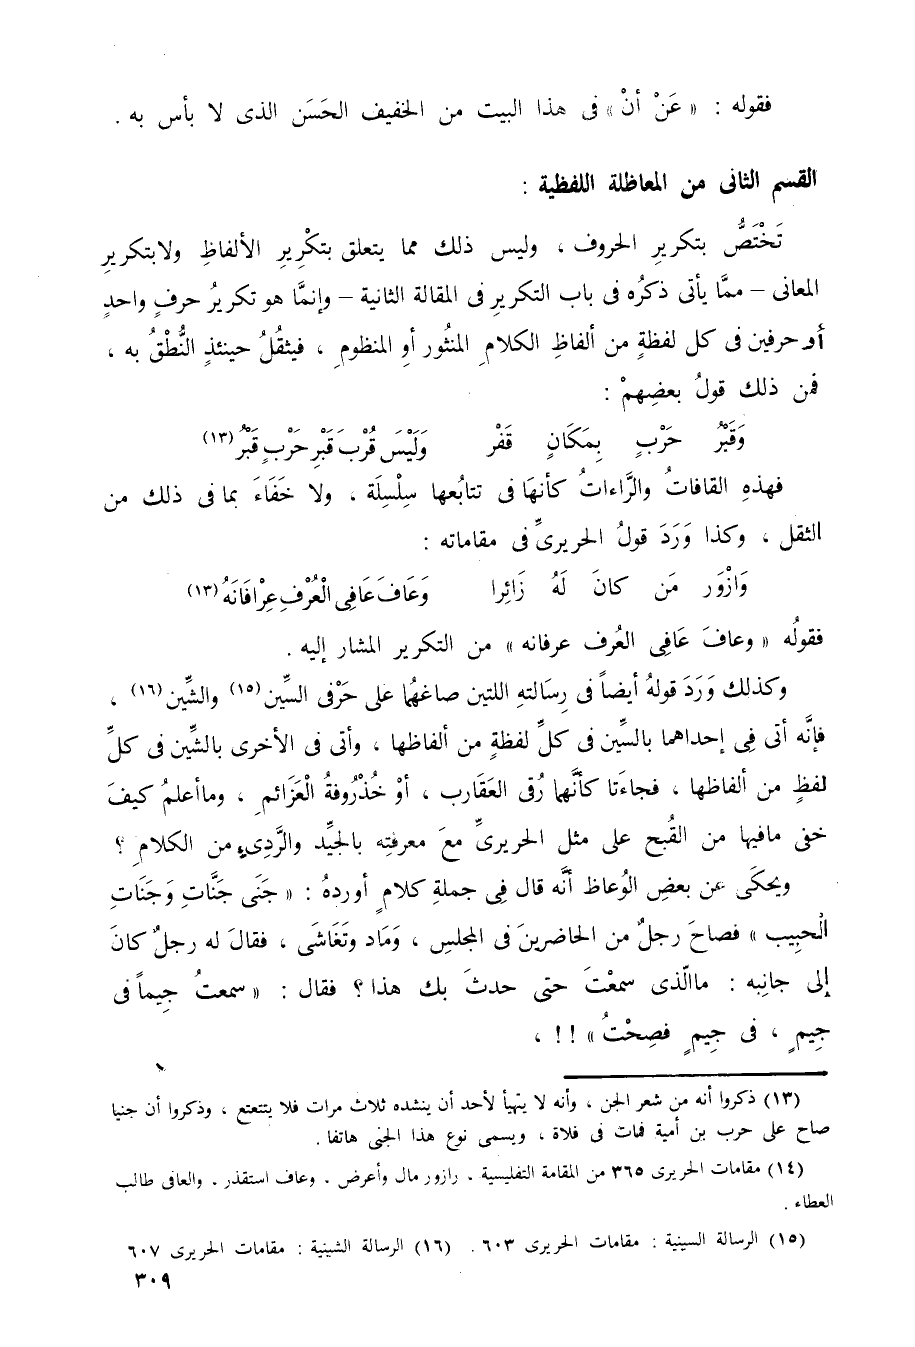 فقوله : « عَنْ أنْ » فى هذا البيت من الخفيف الحَسَن الذى لا بأس به .
القسم الثانى من المعاظلة اللفظية :
تَخْتَصُّ بتكريرِ الحروف ، وليس ذلك مما يتعلق بتكْرِيرِ الألفاظِ ولابتكريرِ
المعانى – ممَّا يأتى ذكرُه فى باب التكريرِ فى المقالة الثانية – وإنمَّا هو تكريرُ حرفٍ واحدٍ
أو حرفين فى كل لفظةٍ من ألفاظِ الكلامِ المنثُور أو المنظومِ ، فيثقُلُ حينئذٍ النُّطْقُ به ،
فمن ذلك قولُ بعضِهمْ :
وَقَبْرُ حَرْبٍ بِمَكَانٍ قَفْر وَلَيْسَ قُرْبَ قَبْرِ حَرْبٍ قَبْرُ (١٣)
فهذهِ القافاتُ والرَّاءاتُ كأنهَا فى تتابُعها سِلْسِلَة ، ولا خَفَاءَ بما فى ذلك من
الثقل ، وكذا وَرَدَ قولُ الحريرىِّ فى مقاماته :
وَازْوَر مَن كانَ لَهُ زَائِرا وَعَافَ عَافِى الْعُرْفِ عِرْافَانَهُ (١٣)
فقولُه « وعافَ عَافِى العُرف عرفانه » من التكرير المشار إليه .
وكذلك وَرَدَ قولهُ أيضاً فى رِسَالتهِ اللتين صاغهُما على حَرْفى السيِّن (١٥) والشيِّن (١٦) ،
فإنَّه أتى فِى إحداهما بالسيِّن فى كلِّ لفظةٍ من ألفاظها ، وأتى فى الأخرى بالشيِّن فى كلِّ
لفظٍ من ألفاظها ، فجاءَتا كأنَّهما رُقى العَقَارب ، أوْ خُذْرُوفةُ الْعَزَائمِ ، وماأعلمُ كيفَ
خفى مافيها من القُبح على مثل الحريرىِّ معَ معرفتِه بالجيِّد والرَّدِىءِ من الكلامِ ؟
ويحكَى عن بعضِ الوُعاظ أنَّه قال فِى جملةِ كلامٍ أوردهُ : « جَنَى جَنَّاتِ وَجَنَاتِ
الْحبِيب » فصاحَ رجلٌ من الحاضرينَ فى المجلسِ ، وَمَاد وتَغَاشَى ، فقالَ له رجلٌ كانَ
إلى جانِبه : ماالَّذى سمعْتَ حتى حدثَ بك هذا ؟ فقال : « سمعتُ جِيماً فى
جِيمٍ ، فى جِيمٍ فصِحْتُ » !! ،
(١٣) ذكروا أنه من شعر الجن ، وأنه لا يتهيأ لأحد أن ينشده ثلاث مرات فلا يتتعتع ، وذكروا أن جنيا
صاح على حرب بن أمية فمات فى فلاة ، ويسمى نوع هذا الجنى هاتفا .
(١٤) مقامات الحريرى ٣٦٥ من المقامة التفليسية . رازور مال وأعرض . وعاف استقذر . والعافى طالب
العطاء .
(١٥) الرسالة السينية : مقامات الحريرى ٦٠٣ . (١٦) الرسالة الشينية : مقامات الحريرى ٦٠٧
٣٠٩